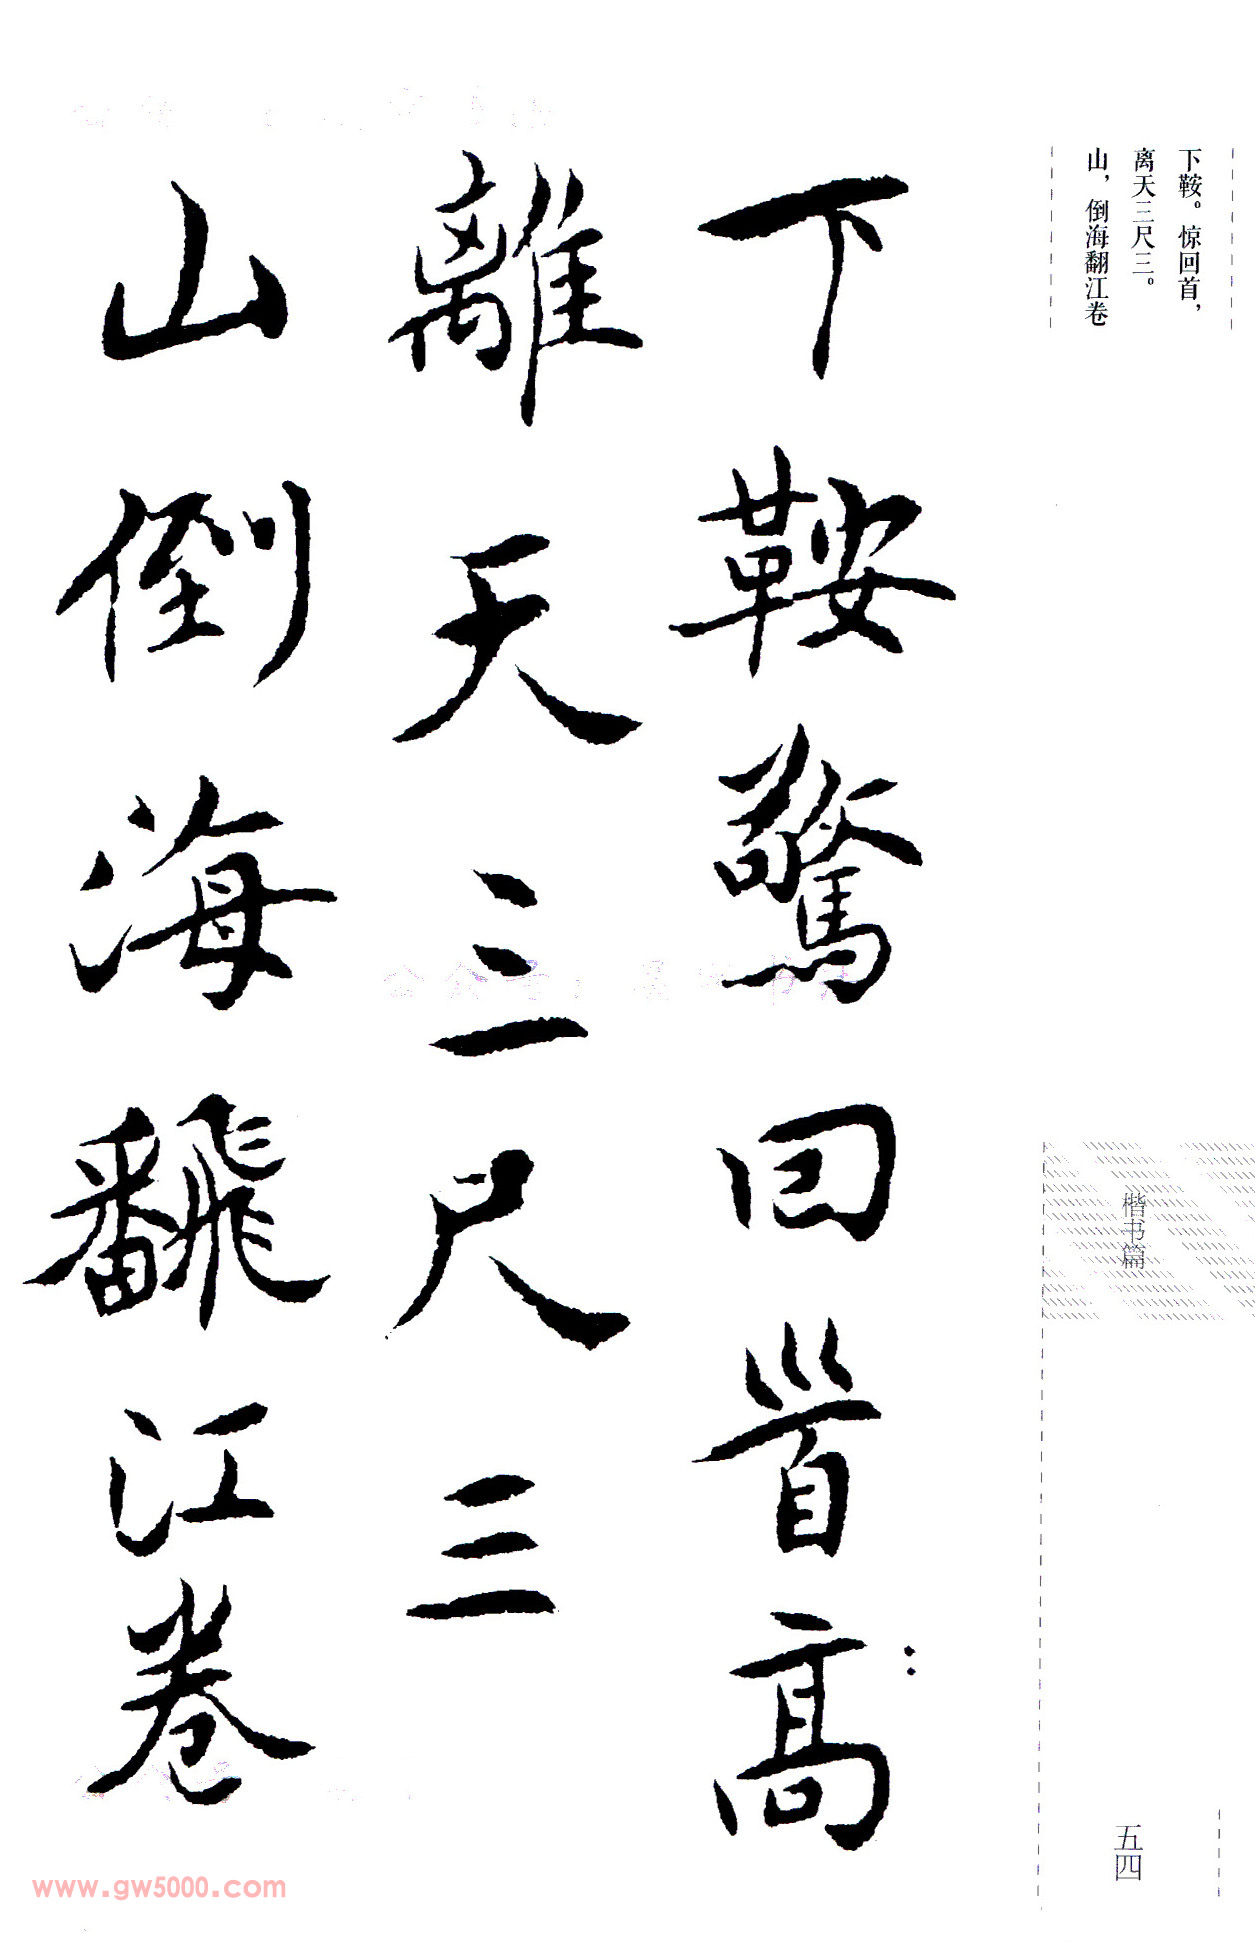 下鞍。惊回首，
离天三尺三。
山，倒海翻江卷
下鞍驚回首高
離天三尺三
山倒海飜江卷
楷书篇
五四
www.gw5000.com